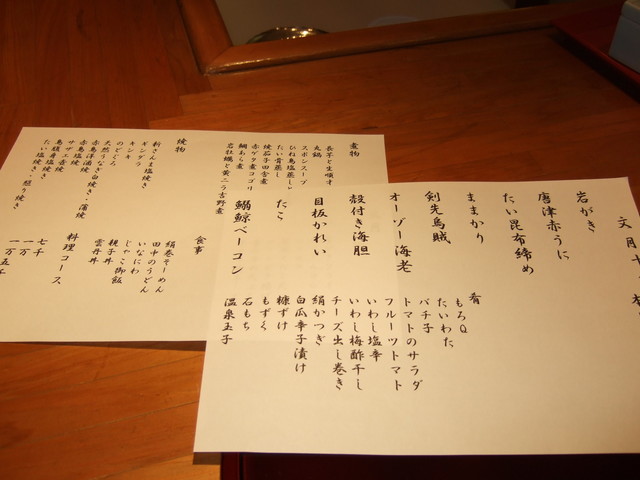 文月十
岩がき
唐津赤うに
たい昆布締め
ままかり
剣先烏賊
オーゾー海老
殻付き海胆
目板かれい
たこ
鰯鯨ベーコン
肴
もろQ
たいわた
バチ子
トマトのサラダ
フルーツトマト
いわし塩辛
いわし梅酢干し
チーズ出し巻き
絹かつぎ
白瓜辛子漬け
糠ずけ
もずく
石もち
温泉玉子
煮物
長芋と生順才
丸鍋
スポンスープ
ひね鳥塩蒸し
たい骨蒸し
絞茄子田舎煮
赤ゲタ煮コゴリ
鯛あら煮
岩牡蠣と黄ニラ吉野煮
焼物
新さんま塩焼き
ギンダラ
キンキ
のどぐろ
天然うなぎ白焼き・蒲焼
赤鳥洋酒焼
サザエ壷焼
鳥腹身塩焼き
たい塩焼き・照り焼き
食事
絹巻そーめん
田中のうどん
いなにわ
じゃこ御飯
親子丼
雲丹丼
料理コース
七千
一万
一万五千